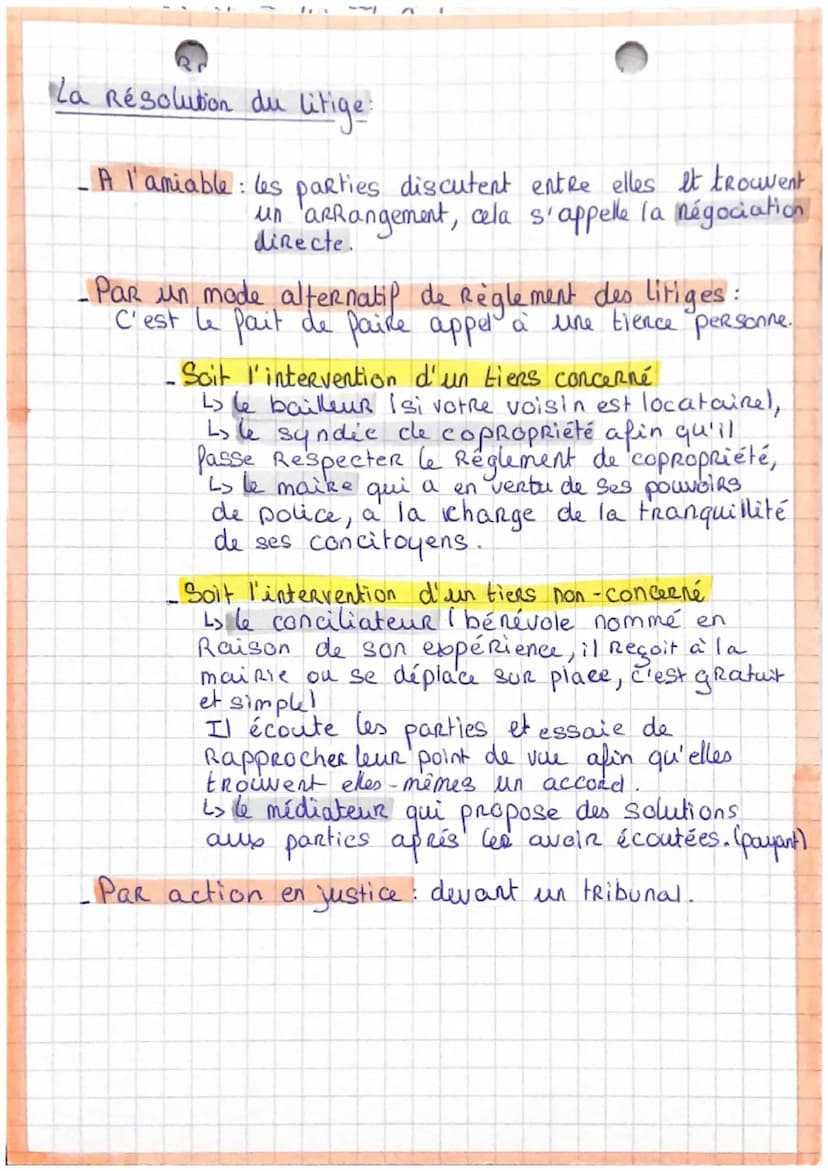 La Résolution du litige:
- A l'amiable : les parties discutent entre elles et trouvent
un arrangement, cela s'appelle la négociation
directe.
- Par un mode alternatif de Règlement des litiges :
C'est le fait de faire appel à une tierce personne.
- Soit l'intervention d'un tiers concerné
↳ le bailleur (si votre voisin est locataire),
↳ le syndic de copropriété afin qu'il
fasse Respecter le Règlement de copropriété,
↳ le maire qui a en vertu de ses pouvoirs
de police, a la charge de la tranquillité
de ses concitoyens.
- Soit l'intervention d'un tiers non-concerné
↳ le conciliateur (bénévole nommé en
Raison de son expérience, il Reçoit à la
mairie ou se déplace sur place, c'est gratuit
et simple)
Il écoute les parties et essaie de
Rapprocher leur point de vue afin qu'elles
trouvent elles-mêmes un accord.
↳ le médiateur qui propose des solutions
aux parties après les avoir écoutées. (payant)
- Par action en justice : devant un tribunal.